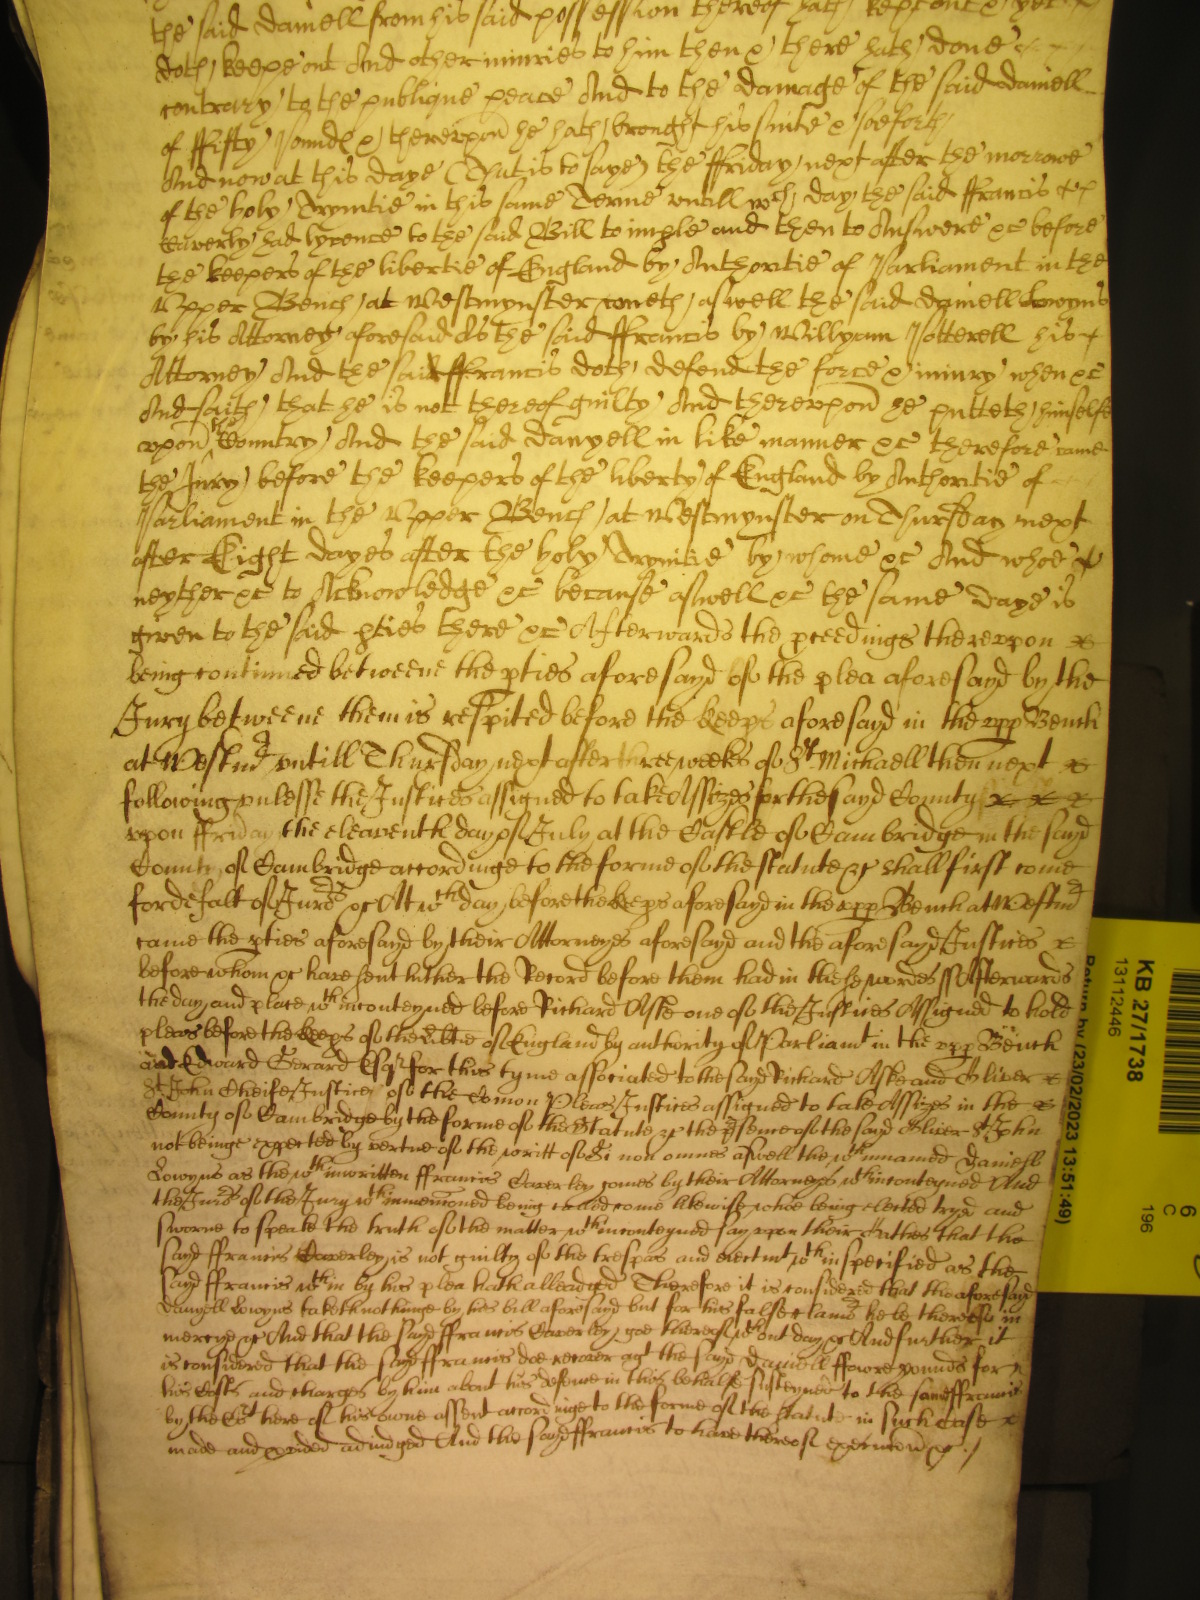 the said daniell from his said possession thereof hath kept out & yet
doth keepe out And other iniuries to him then & there hath done
contrary to the publique peace And to the damage of the said daniell
of ffifty Pounds & therevpon he hath brought his suite & soe forth
And now at this daye (That is to saye) the ffriday next after the morrowe
of the holy Trynitie in this same Terme vntill wch day the said ffrancis
Caverly had lycence to the said Bill to imple and then to Answere &c before
the keepers of the libertie of England by Authoritie of Parliament in the
Vpper Bench at Westmynster cometh aswell the said daniell Lowyns
by his Attorney aforesaid As the said ffrancis by Willyam Potterell his
Attorney And the said ffrancis doth defend the force & iniury when &c
And saith that he is not thereof guilty And therevpon he putteth himselfe
vpon the Country And the said danyell in like manner &c therefore came
the Jury before the keepers of the liberty of England by Authoritie of
Parliament in the Vpper Bench at Westmynster on Thursday next
after Eight dayes after the holy Trynitie by whome &c And whoe
neyther &c to Acknowledge &c because aswell &c the same daye is
given to the said pties there &c Afterwards the pceedings therevpon
being continued betweene the pties aforesayd of the plea aforesayd by the
Jury betweene them is respited before the keeps aforesayd in the vpp Bench
at Westmr vntill Thursday next after three weeks of St Michaell then next
following vnlesse the Justices assigned to take Assizes for the sayd County
vpon ffriday the eleaventh day of July at the Castle of Cambridge in the sayd
County of Cambridge accordinge to the forme of the statute &c shall first come
for defalt of Jurors &c At wch day before the keeps aforesayd in the vpp Bench at Westmr
came the pties aforesayd by their Attorneyes aforesayd and the aforesayd Justices
before whom &c have sent hither the Record before them had in these words ss Afterwards
the day and place wthin conteyned before Richard Aske one of the Justices Assigned to hold
pleas before the keeps of the libtie of England by authority of Parliamt in the vpp Bench
and Edward Gerard Esqr for this tyme associated to the sayd Richard Aske and Oliver
St John Cheife Justice of the Comon Pleas Justices assigned to take Assizes in the
County of Cambridge by the forme of the Statute &c the psence of the sayd Oliver St John
not beinge expected by vertue of the writt of Si non omnes aswell the wthin named Daniell
Lowyns as the wthin written ffrancis Caverley comes by their Attorneys wthin conteyned And
the Jurors of the Jury wthin menconed being called come likewise whoe being elected tryed and
sworne to speake the truth of the matter wthin conteyned say vpon their Oathes that the
sayd ffrancis Caverley is not guilty of the trespas and eiectmt wthin specified as the
sayd ffrancis wthin by his plea hath alleadged Therefore it is considered that the aforesayd
Danyell Lowyns take nothinge by his bill aforesayd but for his false clamor he be thereof in
mercye &c And that the sayd ffrancis Caverley goe thereof wthout day &c And further it
is considered that the sayd ffrancis doe recover agt the sayd Daniell ffowre pounds for
his Costs and charges by him about his defence in this behalfe susteyned to the same ffrancis
by the Crt here of his owne assent accordinge to the forme of the statute in such Case
made and pvided adiudged And the sayd ffrancis to have thereof execucon &c
Return by (23/02/2023 13:51:49)
KB 27/1738
13112446
6
C
196